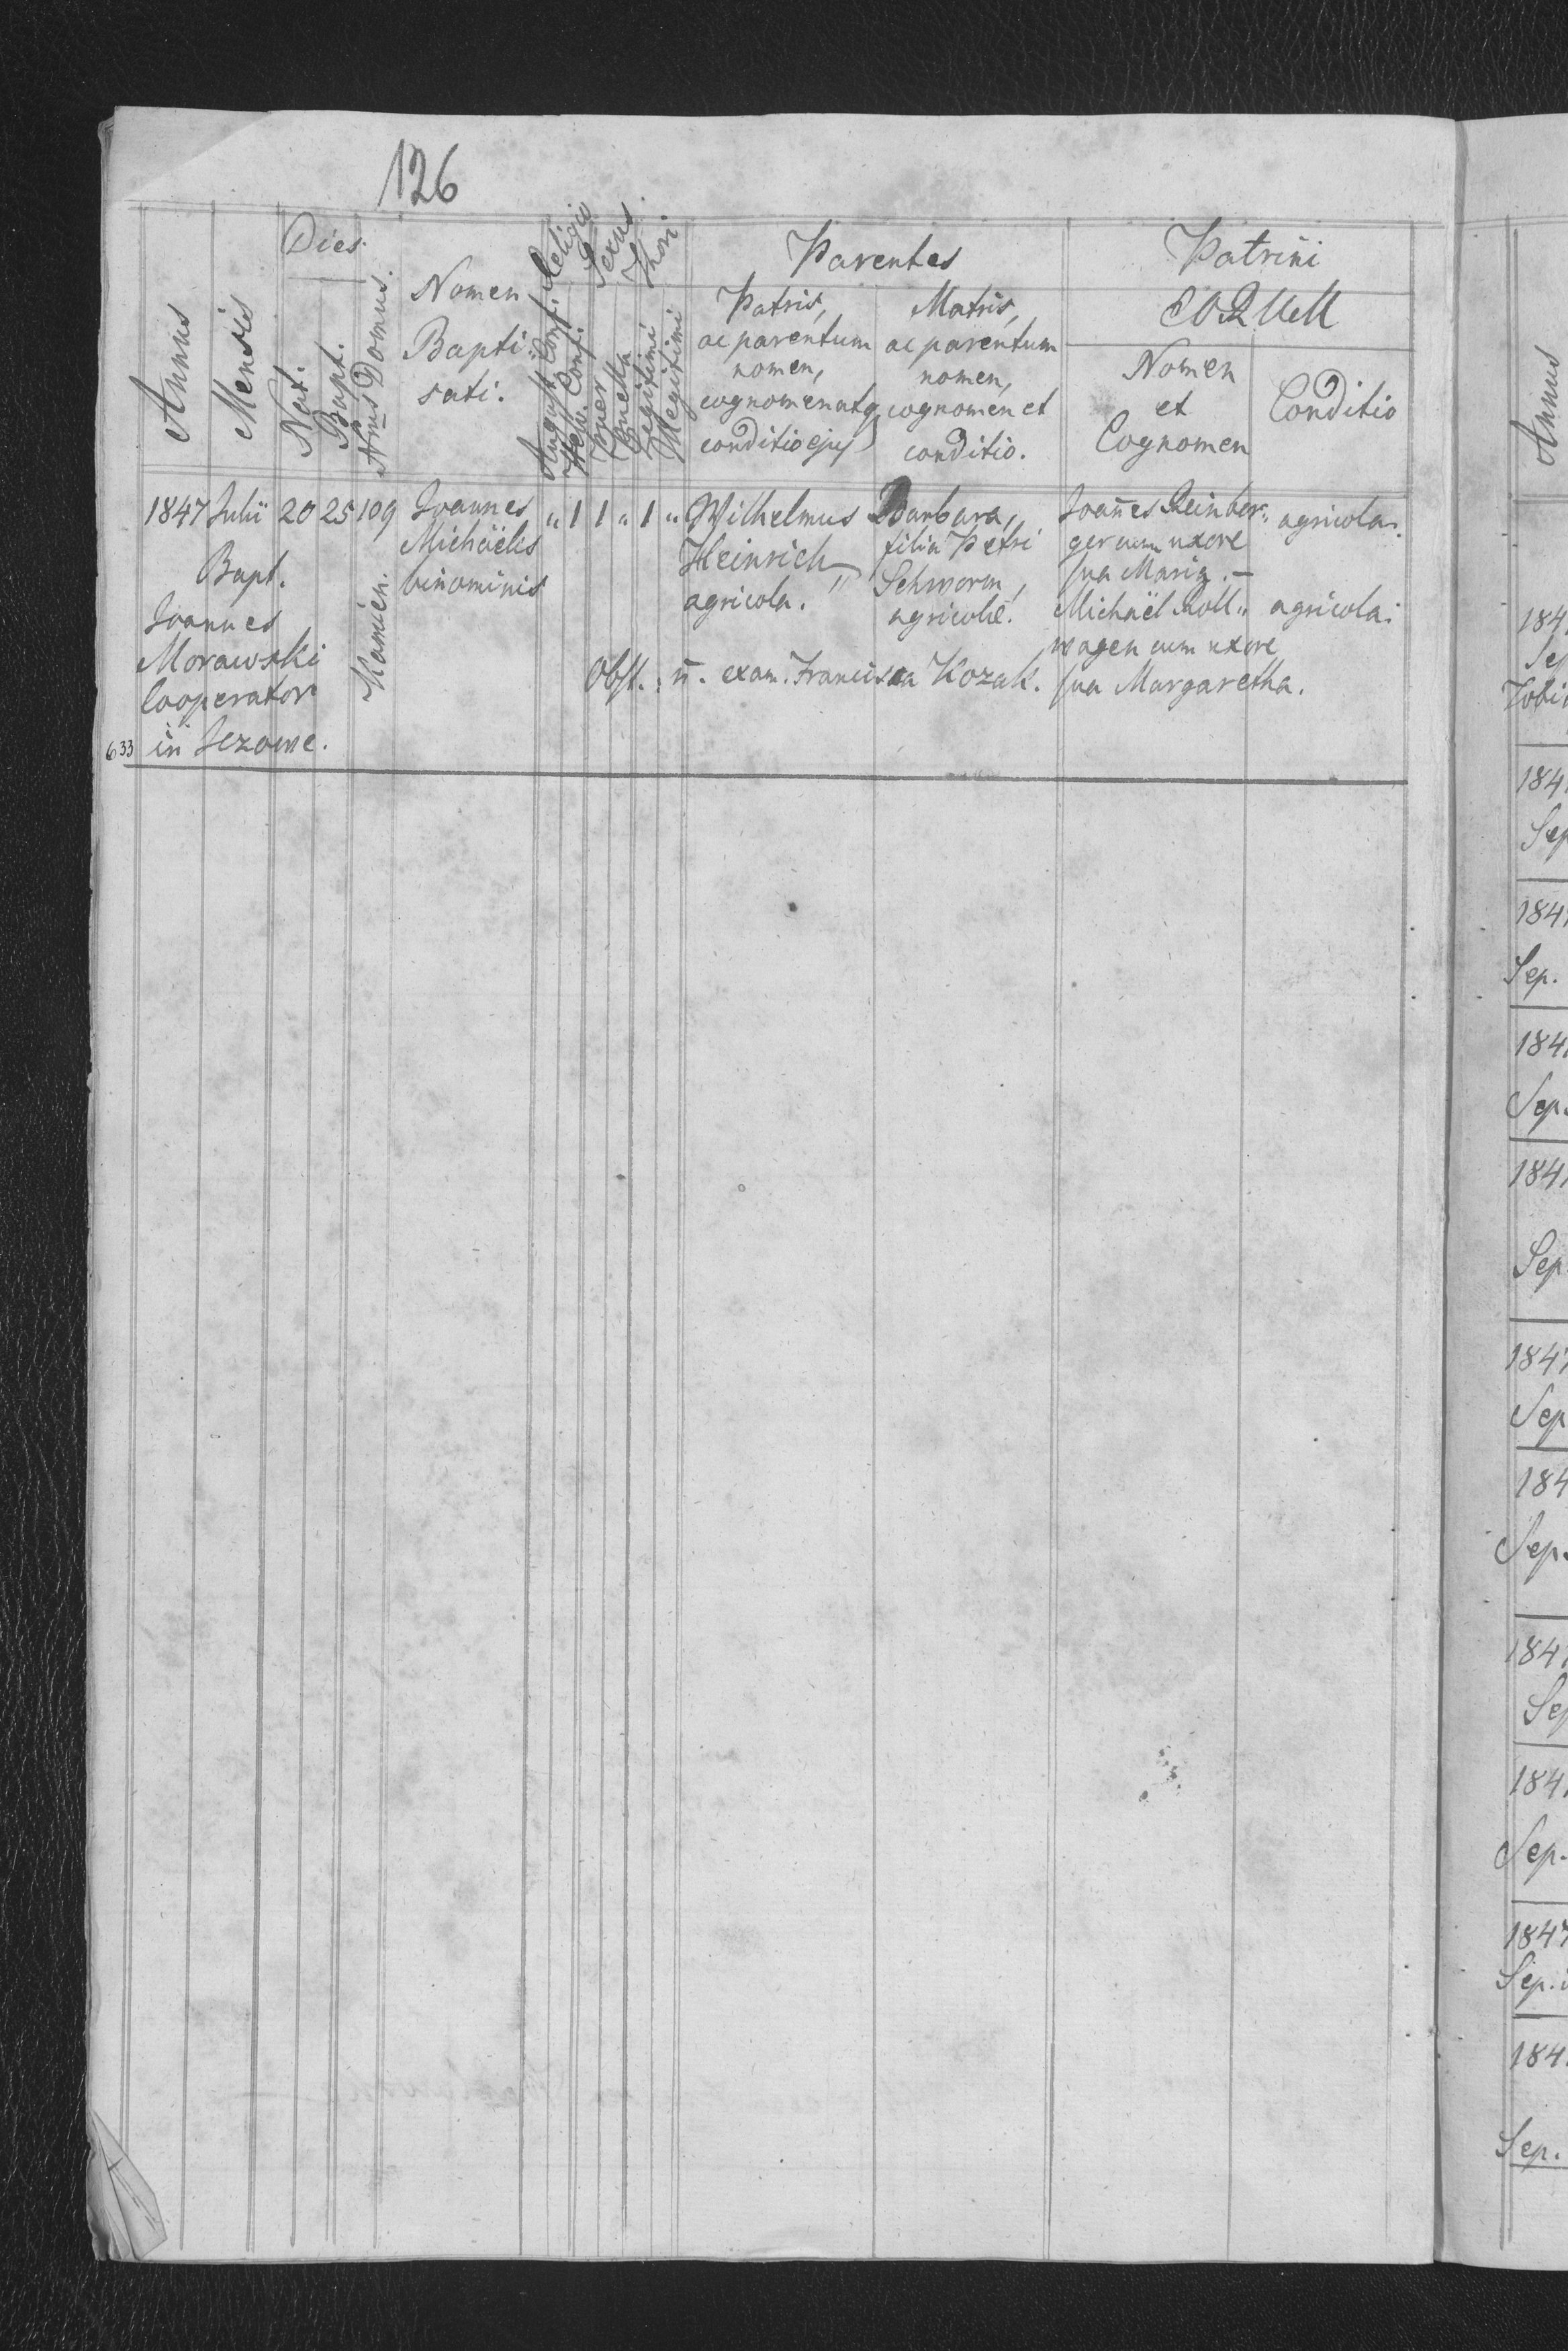 126
Annus
Mensis
Dies
Nat.
Bapt.
Nrus Domus.
Nomen
Bapti-
sati.
Religio
August. Conf.
Helv. Conf.
Sexus.
Puer
Puella
Thori
Legitimi
Illegitimi
Parentes
Patris,
ac parentum
nomen,
cognomen atq
conditio ejus
Matris,
ac parentum
nomen,
cognomen et
conditio.
Patrini
EORUM
Nomen
et
Cognomen
Conditio
1847 Julii 20 25 109 Joannes " 1 1 " 1 " Wilhelmus Barbara, Joañes Reinber: agricola.
Michäelis Heinrich filia Petri ger cum uxore
Bapt. binominis agricola. Schworm, sua Maria. –
Joannes Kamien. agricolæ. Michaël Roll: agricola:
Morawski wagen cum uxore
Cooperator Obst.: ñ. exam. Francisca Kozak. sua Margaretha.
633 in Jezowe.
Annus
184
Se
184
Sep
184
Sep.
184
Sep.
184
Sep
1847
Sep
184
Sep.
184
Sep
184
Sep.
1847
Sep.
184
Sep.